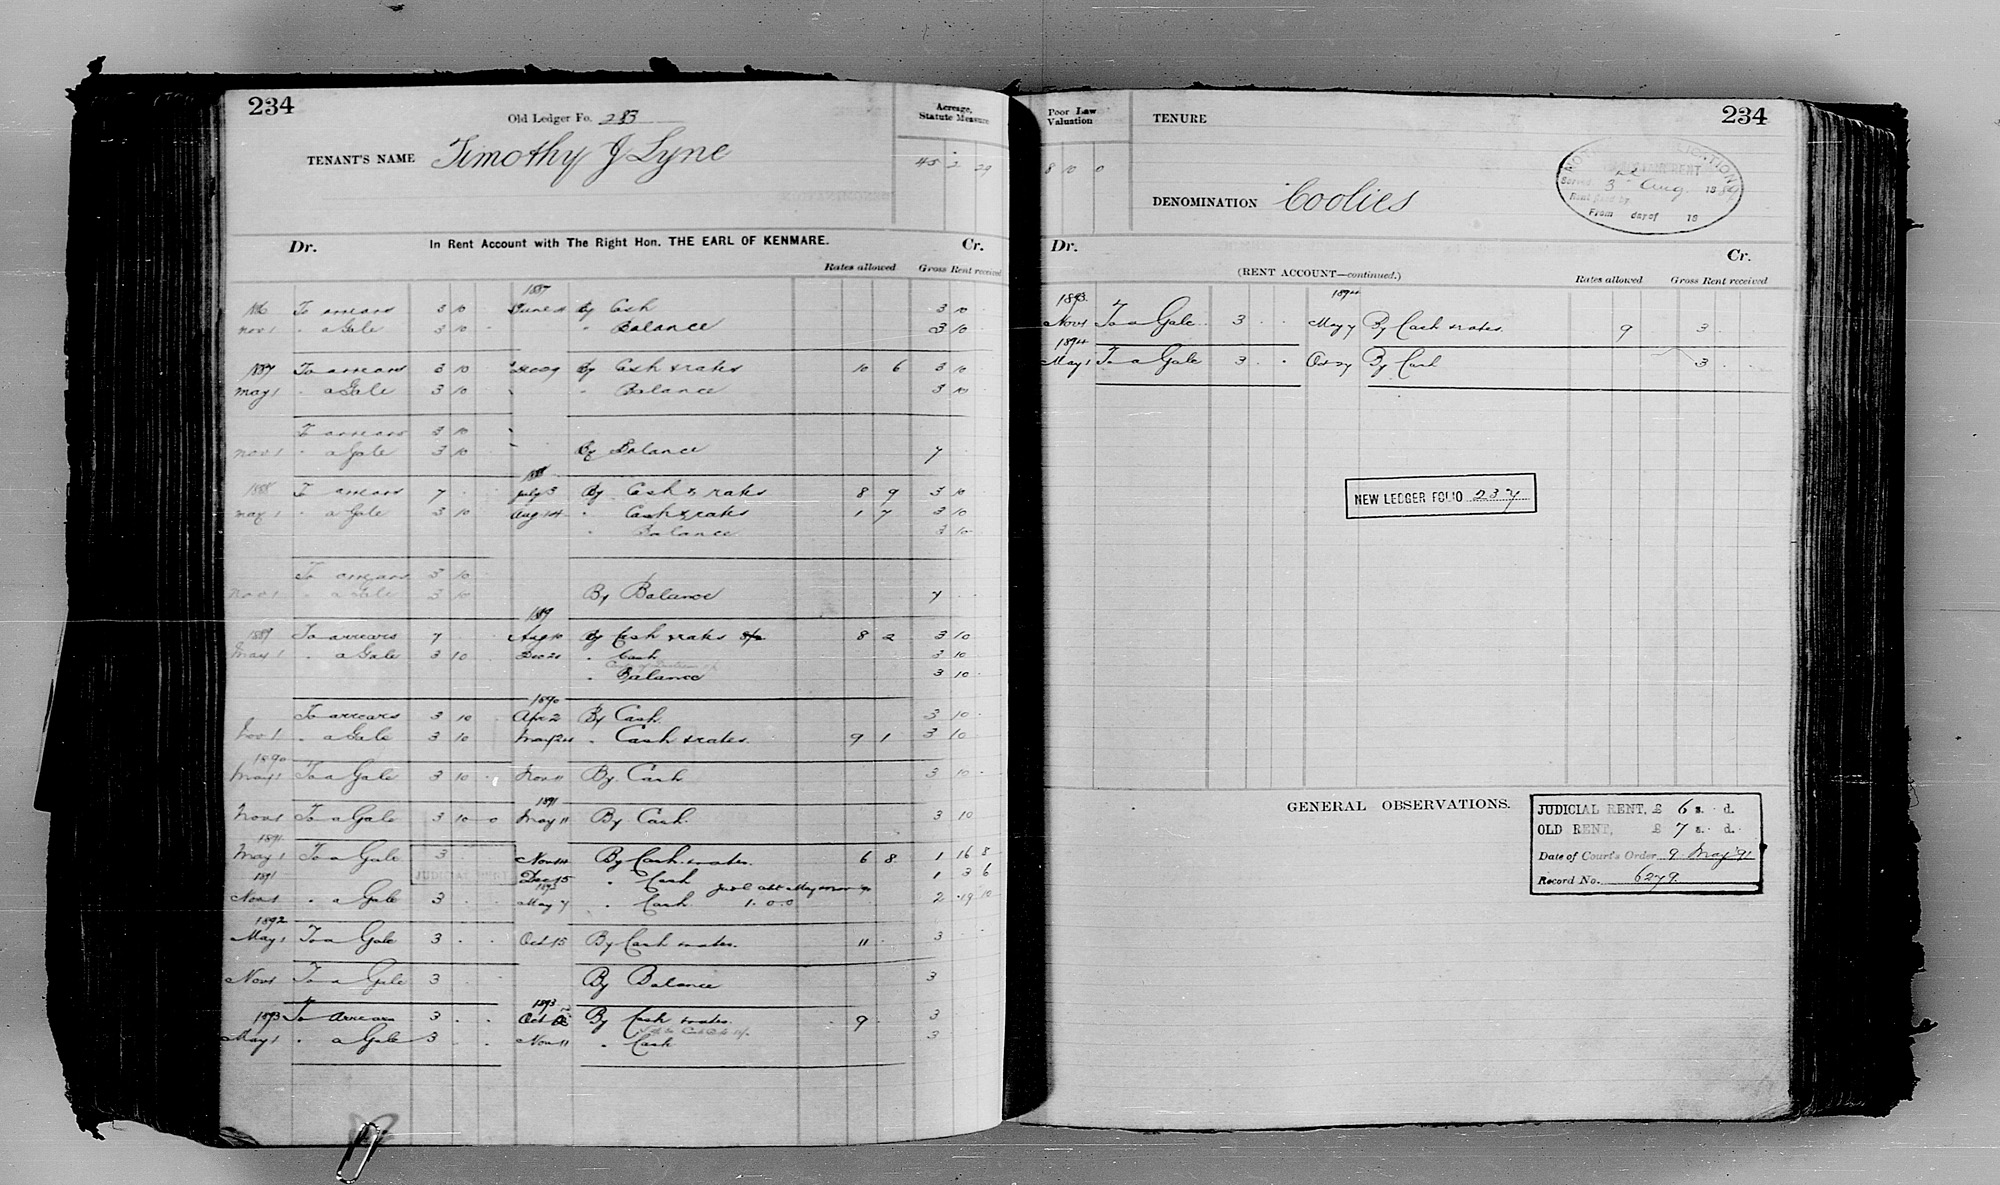 234
Old Ledger Fo. 283
TENANT'S NAME Timothy J Lyne
Acreage, Statute Measure
45 2 29
Dr. In Rent Account with The Right Hon. THE EARL OF KENMARE. Cr.
Rates allowed Gross Rent received
1887
To arrears 3 10 June By Cash 3 10
Nov 1 " a Gale 3 10 " Balance 3 10
1887 To arrears 3 10 Dec 09 By Cash & rates 10 6 3 10
May 1 " a Gale 3 10 " Balance 3 10
To arrears 3 10
Nov 1 " a Gale 3 10 By Balance 7
1888
1888 To arrears 7 July 3 By Cash & rates 8 9 3 10
May 1 " a Gale 3 10 Aug 14 " Cash & rates 1 7 3 10
" Balance 3 10
To arrears 3 10
Nov 1 " a Gale 3 10 By Balance 7
1889
1889 To arrears 7 Aug 10 By Cash & rates 8 2 3 10
May 1 " a Gale 3 10 Dec 21 " Cash 3 10
" Balance 3 10
1890
To arrears 3 10 Apr 2 By Cash 3 10
Nov 1 " a Gale 3 10 May 24 " Cash & rates 9 1 3 10
1890
May 1 To a Gale 3 10 Nov 11 By Cash 3 10
1891
Nov 1 To a Gale 3 10 0 May 11 By Cash 3 10
1891
May 1 To a Gale 3 Nov 14 By Cash & rates. 6 8 1 16 8
JUDICIAL RENT
1891 Dec 15 " Cash 1 3 6
1892
Nov 1 " a Gale 3 May 7 " Cash 1.0.0 2 19 10
1892
May 1 To a Gale 3 Oct 15 By Cash & rates. 11 3
Nov 1 To a Gale 3 By Balance 3
1893
1893 To Arrears 3 Oct By Cash & rates. 9 3
May 1 " a Gale 3 Nov 11 " Cash 3
Poor Law Valuation
8 10 0
TENURE
234
3rd Aug. 1889
From day of 18
DENOMINATION Coolies
Dr. Cr.
(RENT ACCOUNT—continued.) Rates allowed Gross Rent received
1893 1894
Nov 1 To a Gale 3 May 7 By Cash & rates. 9 3
1894
May 1 To a Gale 3 Oct 27 By Cash 3
NEW LEDGER FOLIO 237
GENERAL OBSERVATIONS.
JUDICIAL RENT, £ 6 s. d.
OLD RENT, £ 7 s. d.
Date of Court's Order 9 May '91
Record No. 6279.